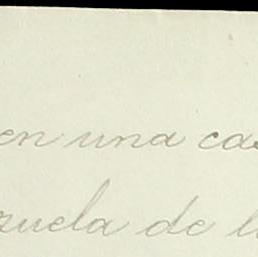 en una cas
zuela de l